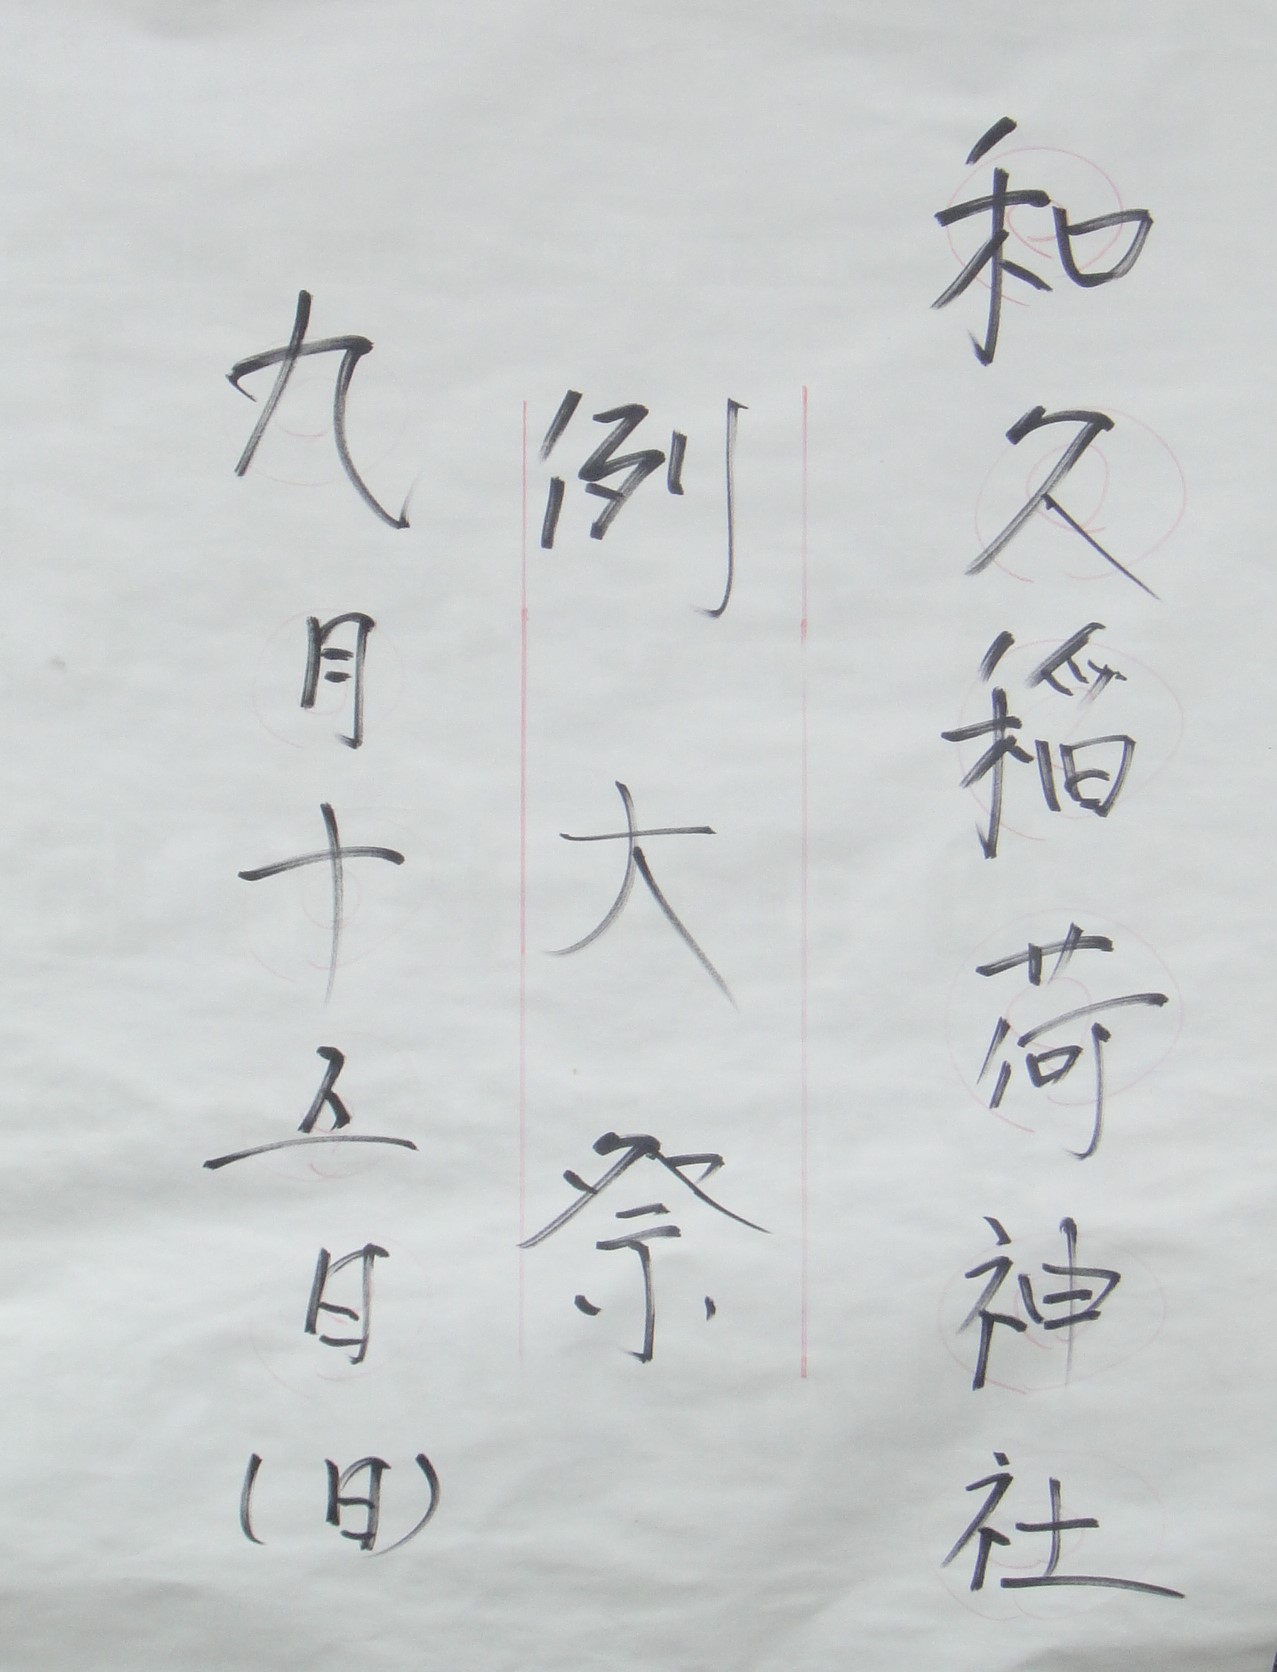 和久稲荷神社
例大祭
九月十五日(日)